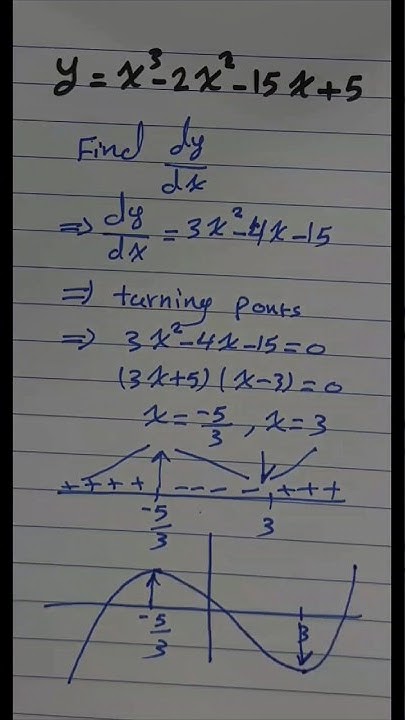 y = x³-2x²-15x+5
Find dy/dx
⇒ dy/dx = 3x²-4x-15
⇒ turning ponts
⇒ 3x²-4x-15=0
(3x+5)(x-3)=0
x = -5/3, x=3
++++ ---- +++
-5/3 3
-5/3 3